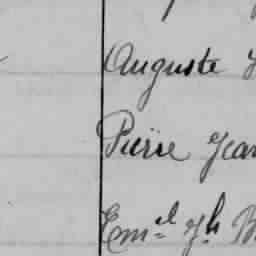 Auguste
Pierre Jean
Em.el Jh